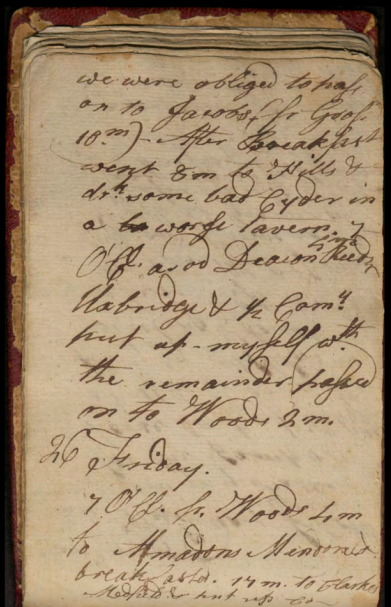 we were obliged to pass
on to Jacobs, fr Gros
10.m) - After Breakfast
went 8m to Hills &
drk some bad Cyder in
a worse tavern. 7
O'Cl. arod Deacon Reeds,
4 ms
Uxbridge & ½ Comy
put up - myself wth
the remainder passed
on to Woods 2m.
26 Friday.
7 O'Cl. fr. Woods 4m
to Amadons Mendon &
breakfastd. 17 m. to Clarkes
Medfield & put up